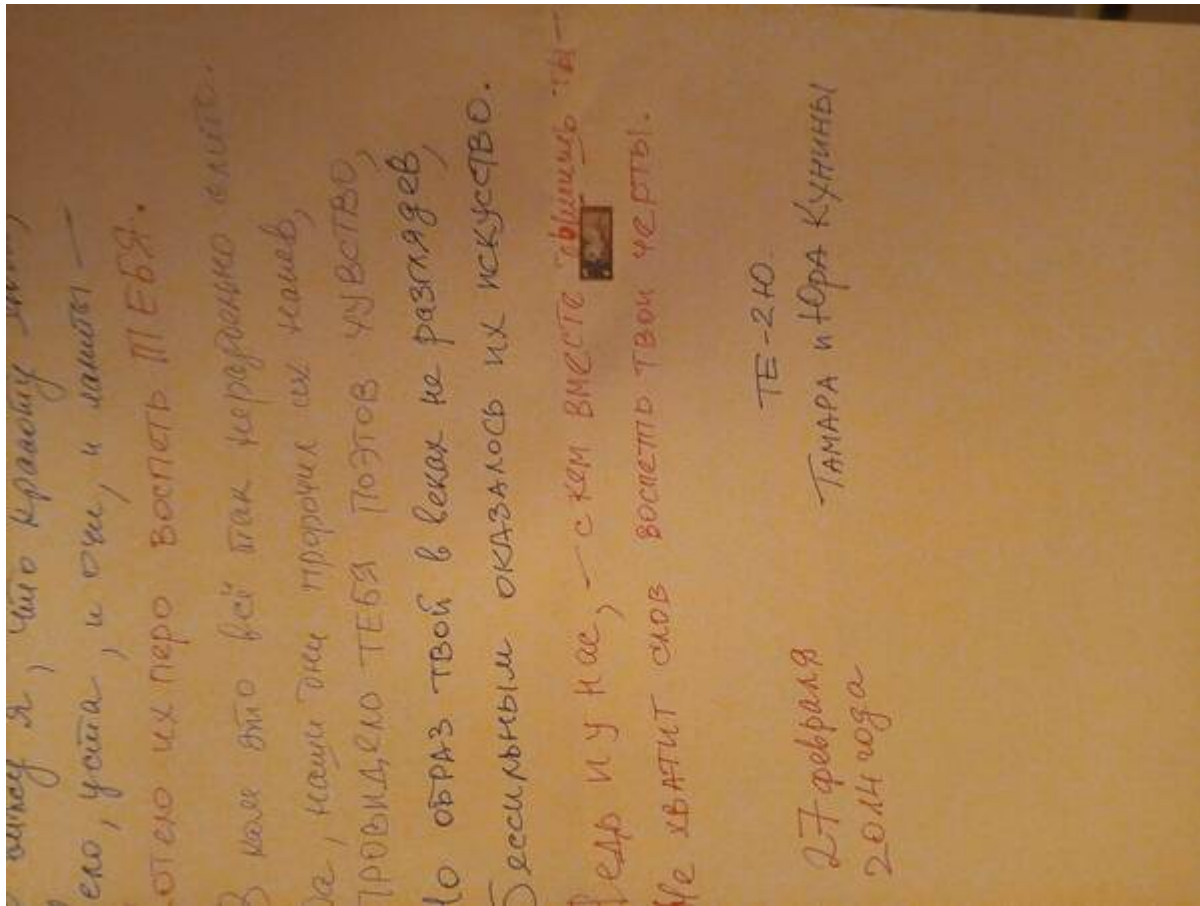 вижу я, что красоту
чело, уста, и очи, и ланиты —
хотело их перо воспеть ТЕБЯ.
В нам это всё так нераздельно слито.
Да, наши дни пророчил их напев,
ПРОВИДЕЛО ТЕБЯ ПОЭТОВ ЧУВСТВО,
Но ОБРАЗ ТВОЙ в веках не разглядев,
Бессильным ОКАЗАЛОСЬ ИХ ИСКУССТВО.
Ведь и у нас, — с кем ВМЕСТЕ ТЫ —
Не ХВАТИТ слов воспеть ТВОИ ЧЕРТЫ.
ТЕ-2Ю
27 февраля ТАМАРА и ЮРА КУНИНЫ
2014 года